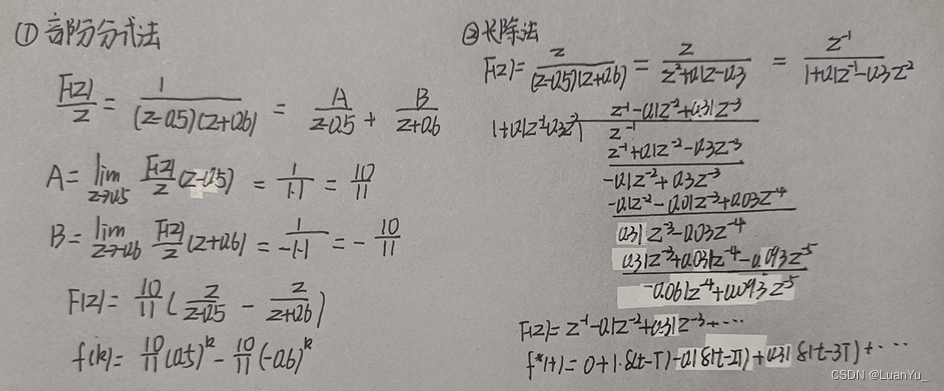 ① 部分分式法
F(z)/z = 1/((z-0.5)(z+0.6)) = A/(z-0.5) + B/(z+0.6)
A = lim z→0.5 F(z)/z (z-0.5) = 1/1.1 = 10/11
B = lim z→-0.6 F(z)/z (z+0.6) = 1/-1.1 = - 10/11
F(z) = 10/11 ( z/(z-0.5) - z/(z+0.6) )
f(k) = 10/11 (0.5)^k - 10/11 (-0.6)^k
② 长除法
F(z) = z/((z-0.5)(z+0.6)) = z/(z²+0.1z-0.3) = z⁻¹/(1+0.1z⁻¹-0.3z⁻²)
z⁻¹-0.1z⁻²+0.31z⁻³
1+0.1z⁻¹-0.3z⁻² ) z⁻¹
z⁻¹+0.1z⁻²-0.3z⁻³
-0.1z⁻²+0.3z⁻³
-0.1z⁻²-0.01z⁻³+0.03z⁻⁴
0.31z⁻³-0.03z⁻⁴
0.31z⁻³+0.031z⁻⁴-0.093z⁻⁵
-0.061z⁻⁴+0.093z⁻⁵
F(z) = z⁻¹-0.1z⁻²+0.31z⁻³+···
f*(t) = 0+1·δ(t-T)-0.1δ(t-2T)+0.31δ(t-3T)+···
CSDN @LuanYu_